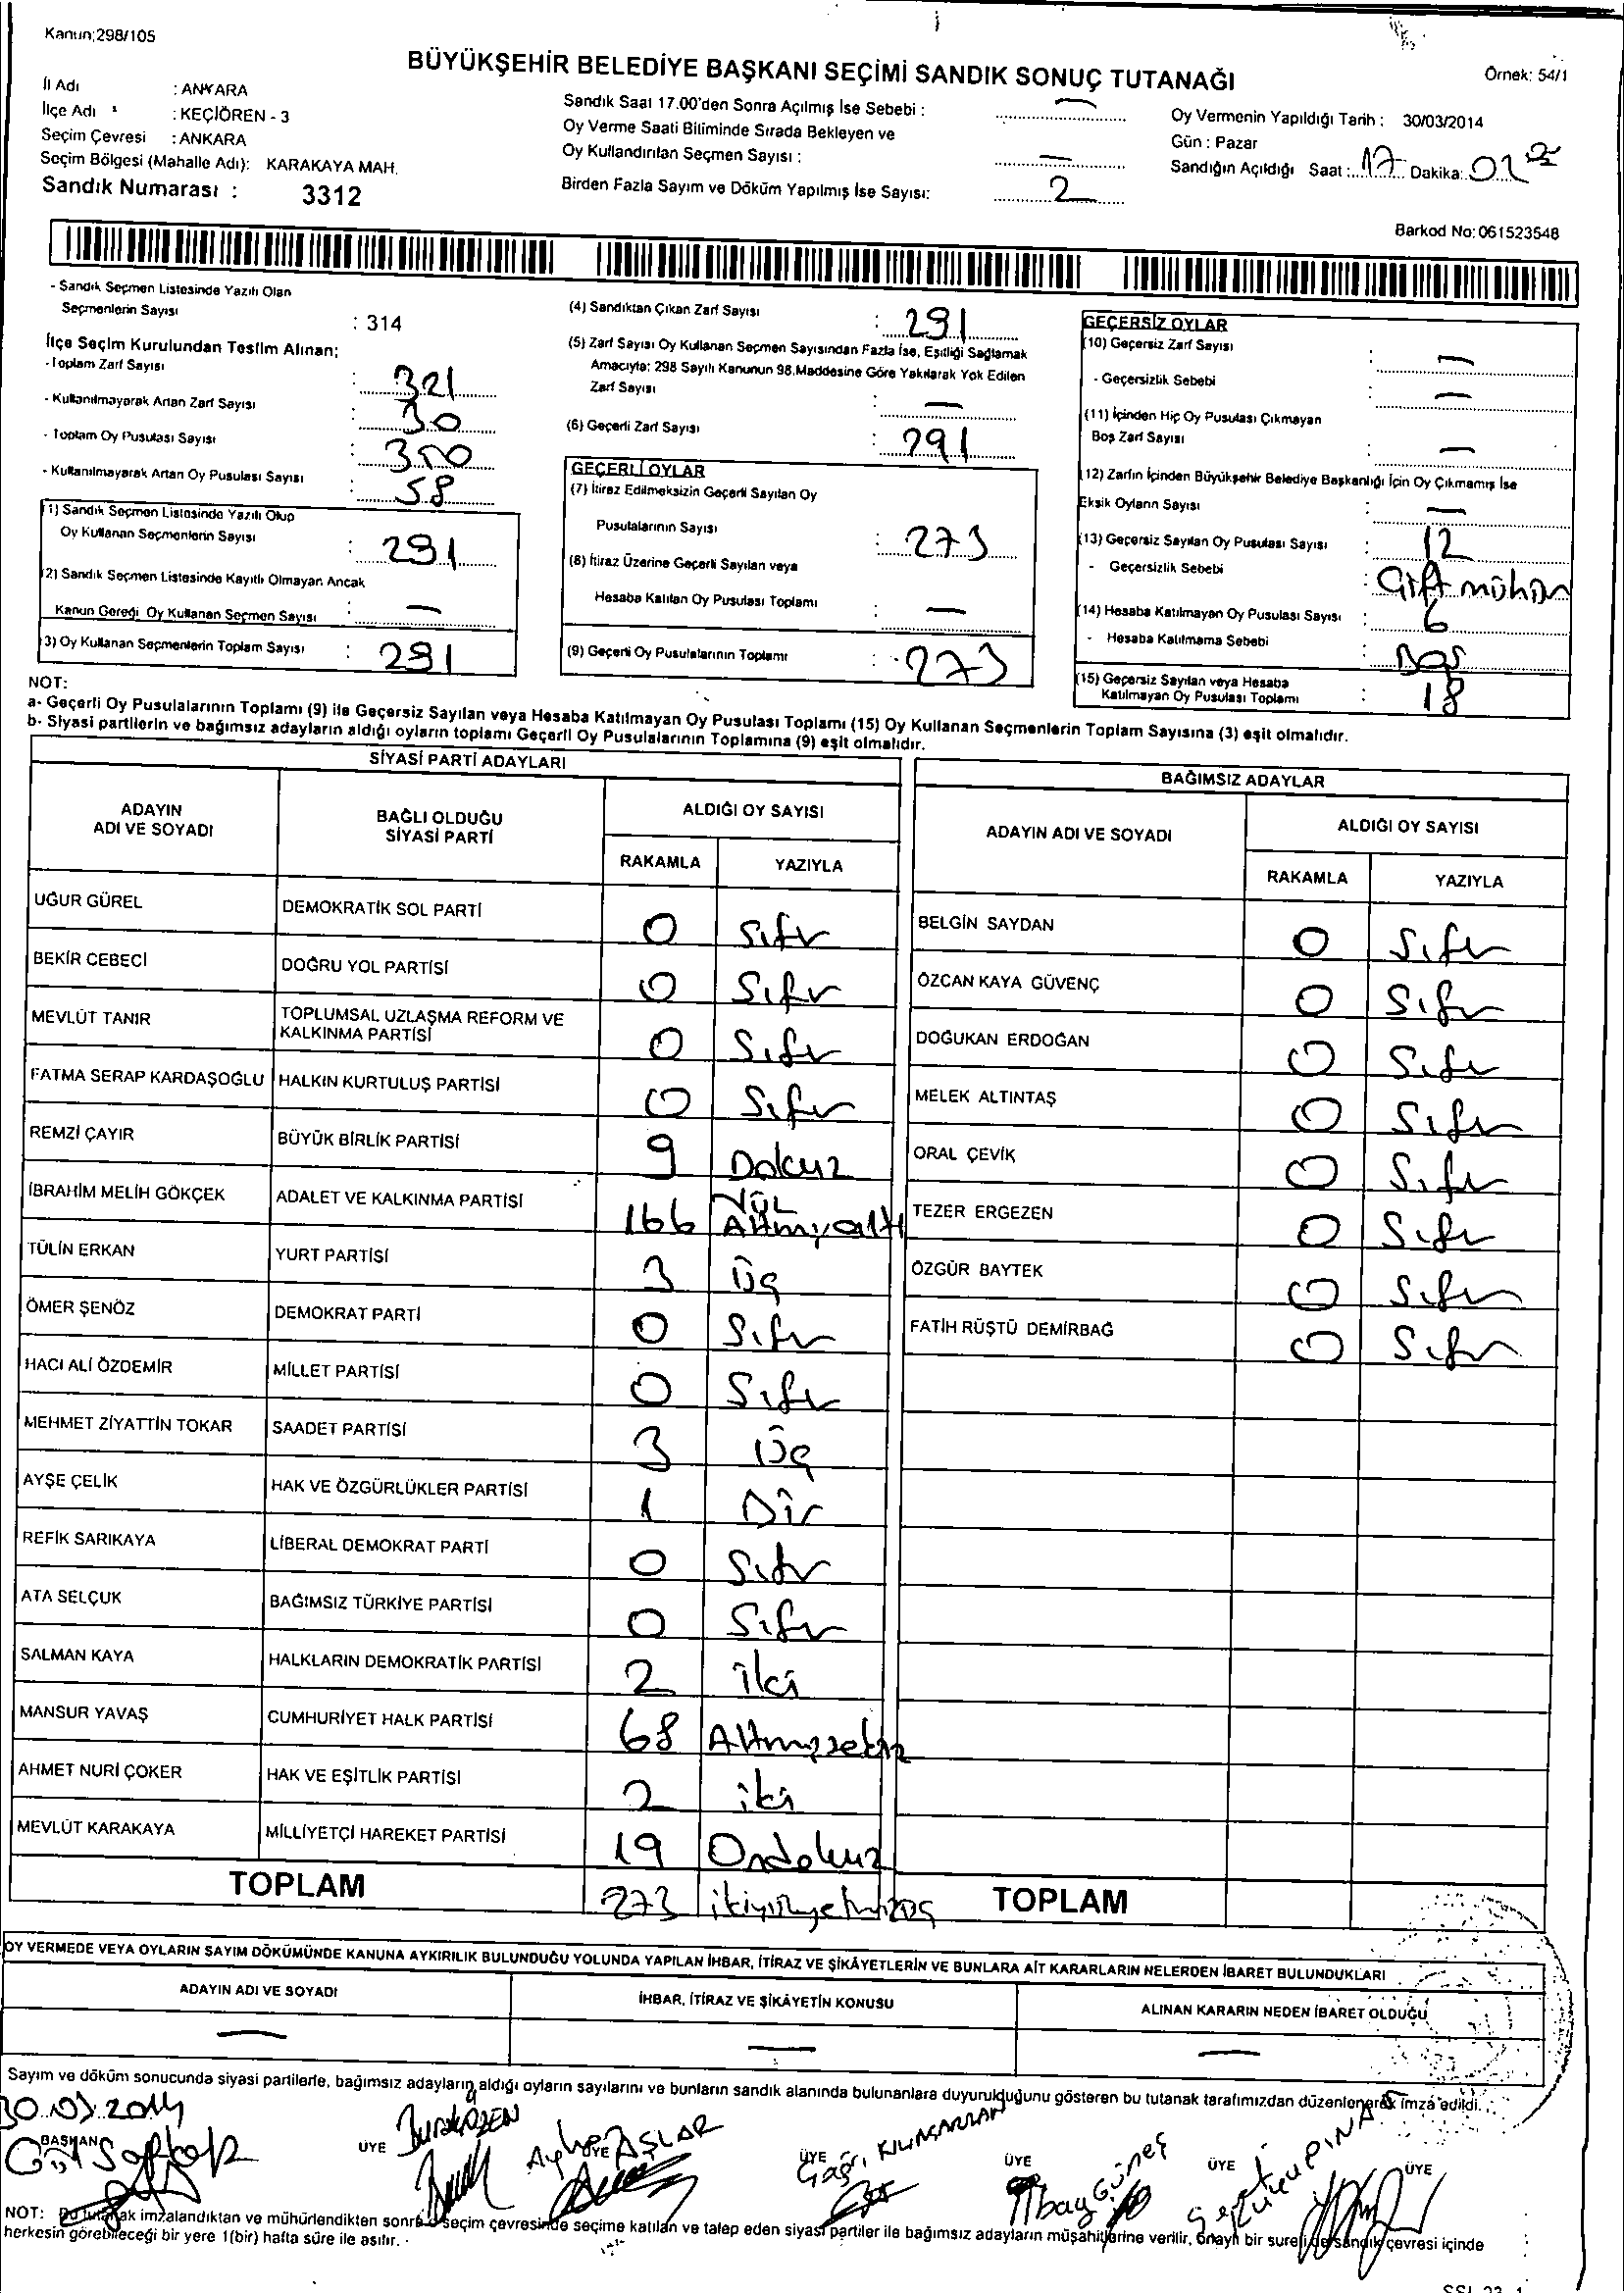 Kanun;298/105
BÜYÜKŞEHİR BELEDİYE BAŞKANI SEÇİMİ SANDIK SONUÇ TUTANAĞI
Örnek: 54/1
İl Adı : ANKARA
İlçe Adı : KEÇİÖREN - 3
Seçim Çevresi : ANKARA
Seçim Bölgesi (Mahalle Adı): KARAKAYA MAH.
Sandık Numarası : 3312
Sandık Saat 17.00'den Sonra Açılmış İse Sebebi : —
Oy Verme Saati Bitiminde Sırada Bekleyen ve
Oy Kullandırılan Seçmen Sayısı : —
Birden Fazla Sayım ve Döküm Yapılmış İse Sayısı: 2
Oy Vermenin Yapıldığı Tarih : 30/03/2014
Gün : Pazar
Sandığın Açıldığı Saat : 17 Dakika:
Barkod No: 061523548
- Sandık Seçmen Listesinde Yazılı Olan
Seçmenlerin Sayısı : 314
İlçe Seçim Kurulundan Teslim Alınan;
- Toplam Zarf Sayısı : 321
- Kullanılmayarak Artan Zarf Sayısı : 30
- Toplam Oy Pusulası Sayısı : 350
- Kullanılmayarak Artan Oy Pusulası Sayısı : 58
(1) Sandık Seçmen Listesinde Yazılı Olup
Oy Kullanan Seçmenlerin Sayısı : 291
(2) Sandık Seçmen Listesinde Kayıtlı Olmayan Ancak
Kanun Gereği, Oy Kullanan Seçmen Sayısı : —
(3) Oy Kullanan Seçmenlerin Toplam Sayısı : 291
(4) Sandıktan Çıkan Zarf Sayısı : 291
(5) Zarf Sayısı Oy Kullanan Seçmen Sayısından Fazla İse, Eşitliği Sağlamak
Amacıyla; 298 Sayılı Kanunun 98.Maddesine Göre Yakılarak Yok Edilen
Zarf Sayısı : —
(6) Geçerli Zarf Sayısı : 291
GEÇERLİ OYLAR
(7) İtiraz Edilmeksizin Geçerli Sayılan Oy
Pusulalarının Sayısı : 273
(8) İtiraz Üzerine Geçerli Sayılan veya
Hesaba Katılan Oy Pusulası Toplamı : —
(9) Geçerli Oy Pusulalarının Toplamı : 273
GEÇERSİZ OYLAR
(10) Geçersiz Zarf Sayısı : —
- Geçersizlik Sebebi : —
(11) İçinden Hiç Oy Pusulası Çıkmayan
Boş Zarf Sayısı : —
(12) Zarfın İçinden Büyükşehir Belediye Başkanlığı İçin Oy Çıkmamış İse
Eksik Oyların Sayısı : —
(13) Geçersiz Sayılan Oy Pusulası Sayısı : 12
- Geçersizlik Sebebi : Çift mühür
(14) Hesaba Katılmayan Oy Pusulası Sayısı : 6
- Hesaba Katılmama Sebebi : Boş
(15) Geçersiz Sayılan veya Hesaba
Katılmayan Oy Pusulası Toplamı : 18
NOT:
a- Geçerli Oy Pusulalarının Toplamı (9) ile Geçersiz Sayılan veya Hesaba Katılmayan Oy Pusulası Toplamı (15) Oy Kullanan Seçmenlerin Toplam Sayısına (3) eşit olmalıdır.
b- Siyasi partilerin ve bağımsız adayların aldığı oyların toplamı Geçerli Oy Pusulalarının Toplamına (9) eşit olmalıdır.
SİYASİ PARTİ ADAYLARI
ADAYIN ADI VE SOYADI
BAĞLI OLDUĞU SİYASİ PARTİ
ALDIĞI OY SAYISI
RAKAMLA YAZIYLA
UĞUR GÜREL DEMOKRATİK SOL PARTİ 0 Sıfır
BEKİR CEBECİ DOĞRU YOL PARTİSİ 0 Sıfır
MEVLÜT TANIR TOPLUMSAL UZLAŞMA REFORM VE KALKINMA PARTİSİ 0 Sıfır
FATMA SERAP KARDAŞOĞLU HALKIN KURTULUŞ PARTİSİ 0 Sıfır
REMZİ ÇAYIR BÜYÜK BİRLİK PARTİSİ 9 Dokuz
İBRAHİM MELİH GÖKÇEK ADALET VE KALKINMA PARTİSİ 166 Yüz Altmışaltı
TÜLİN ERKAN YURT PARTİSİ 3 Üç
ÖMER ŞENÖZ DEMOKRAT PARTİ 0 Sıfır
HACI ALİ ÖZDEMİR MİLLET PARTİSİ 0 Sıfır
MEHMET ZİYATTİN TOKAR SAADET PARTİSİ 3 Üç
AYŞE ÇELİK HAK VE ÖZGÜRLÜKLER PARTİSİ 1 Bir
REFİK SARIKAYA LİBERAL DEMOKRAT PARTİ 0 Sıfır
ATA SELÇUK BAĞIMSIZ TÜRKİYE PARTİSİ 0 Sıfır
SALMAN KAYA HALKLARIN DEMOKRATİK PARTİSİ 2 iki
MANSUR YAVAŞ CUMHURİYET HALK PARTİSİ 68 Altmışsekiz
AHMET NURİ ÇOKER HAK VE EŞİTLİK PARTİSİ 2 iki
MEVLÜT KARAKAYA MİLLİYETÇİ HAREKET PARTİSİ 19 Ondokuz
TOPLAM 273 ikiyüzyetmişüç
BAĞIMSIZ ADAYLAR
ADAYIN ADI VE SOYADI
ALDIĞI OY SAYISI
RAKAMLA YAZIYLA
BELGİN SAYDAN 0 Sıfır
ÖZCAN KAYA GÜVENÇ 0 Sıfır
DOĞUKAN ERDOĞAN 0 Sıfır
MELEK ALTINTAŞ 0 Sıfır
ORAL ÇEVİK 0 Sıfır
TEZER ERGEZEN 0 Sıfır
ÖZGÜR BAYTEK 0 Sıfır
FATİH RÜŞTÜ DEMİRBAĞ 0 Sıfır
TOPLAM
OY VERMEDE VEYA OYLARIN SAYIM DÖKÜMÜNDE KANUNA AYKIRILIK BULUNDUĞU YOLUNDA YAPILAN İHBAR, İTİRAZ VE ŞİKÂYETLERİN VE BUNLARA AİT KARARLARIN NELERDEN İBARET BULUNDUKLARI
ADAYIN ADI VE SOYADI İHBAR, İTİRAZ VE ŞİKÂYETİN KONUSU ALINAN KARARIN NEDEN İBARET OLDUĞU
— — —
Sayım ve döküm sonucunda siyasi partilerle, bağımsız adayların aldığı oyların sayılarını ve bunların sandık alanında bulunanlara duyurulduğunu gösteren bu tutanak tarafımızdan düzenlenerek imza edildi.
30.03.2014
BAŞKAN ÜYE ÜYE ÜYE ÜYE ÜYE ÜYE
AŞLAR
Güneş
NOT: Bu tutanak imzalandıktan ve mühürlendikten sonra seçim çevresinde seçime katılan ve talep eden siyasi partiler ile bağımsız adayların müşahitlerine verilir, onaylı bir sureti de sandık çevresi içinde
herkesin görebileceği bir yere 1(bir) hafta süre ile asılır.